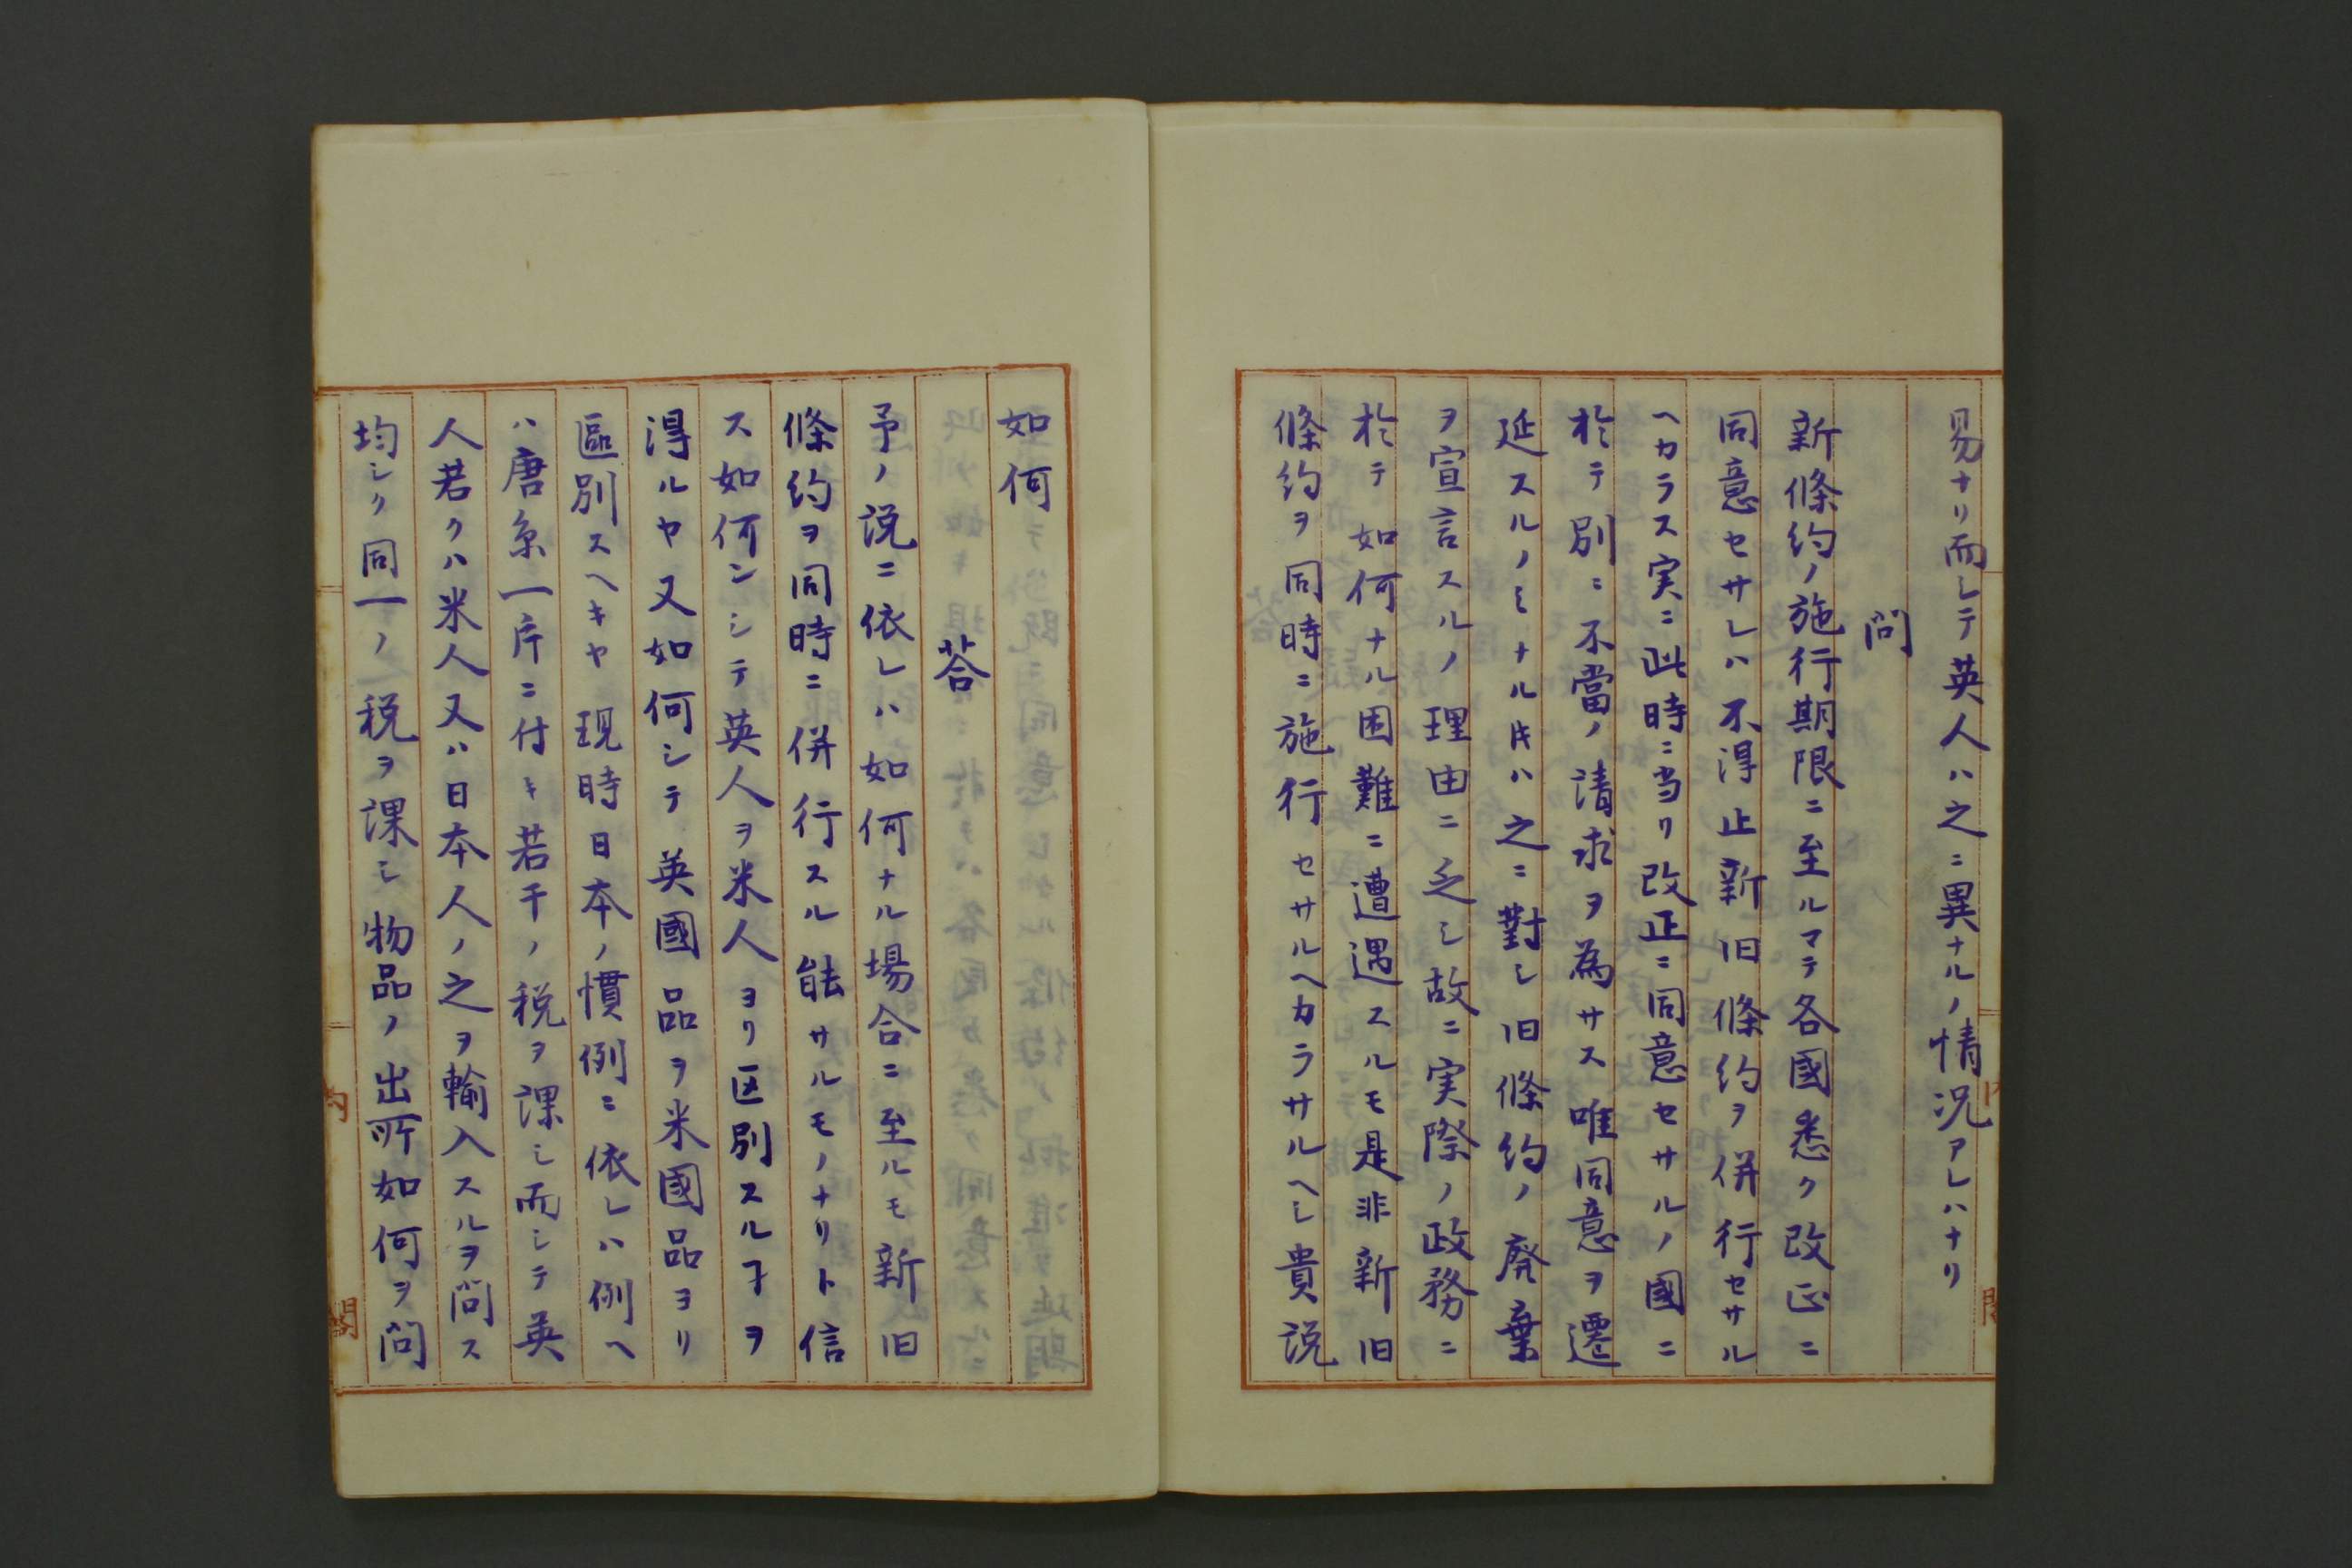 易ナリ而シテ英人ハ之ニ異ナルノ情况アレハナリ
問
新條約ノ施行期限ニ至ルマテ各國悉ク改正ニ
同意セサレハ不得止新旧條約ヲ併行セサル
ヘカラス実ニ此時ニ当リ改正ニ同意セサルノ國ニ
於テ別ニ不當ノ請求ヲ為サス唯同意ヲ遷
延スルノミナル片ハ之ニ對シ旧條約ノ廃棄
ヲ宣言スルノ理由ニ乏シ故ニ実際ノ政務ニ
於テ如何ナル困難ニ遭遇スルモ是非新旧
條約ヲ同時ニ施行セサルヘカラサルヘシ貴説
如何
答
予ノ説ニ依レハ如何ナル場合ニ至ルモ新旧
條約ヲ同時ニ併行スル能サルモノナリト信
ス如何ンシテ英人ヲ米人ヨリ区別スルヿヲ
得ルヤ又如何シテ英國品ヲ米國品ヨリ
區別スヘキヤ現時日本ノ慣例ニ依レハ例ヘ
ハ唐糸一斤ニ付キ若干ノ税ヲ課シ而シテ英
人若クハ米人又ハ日本人ノ之ヲ輸入スルヲ問ス
均シク同一ノ税ヲ課シ物品ノ出所如何ヲ問
内閣